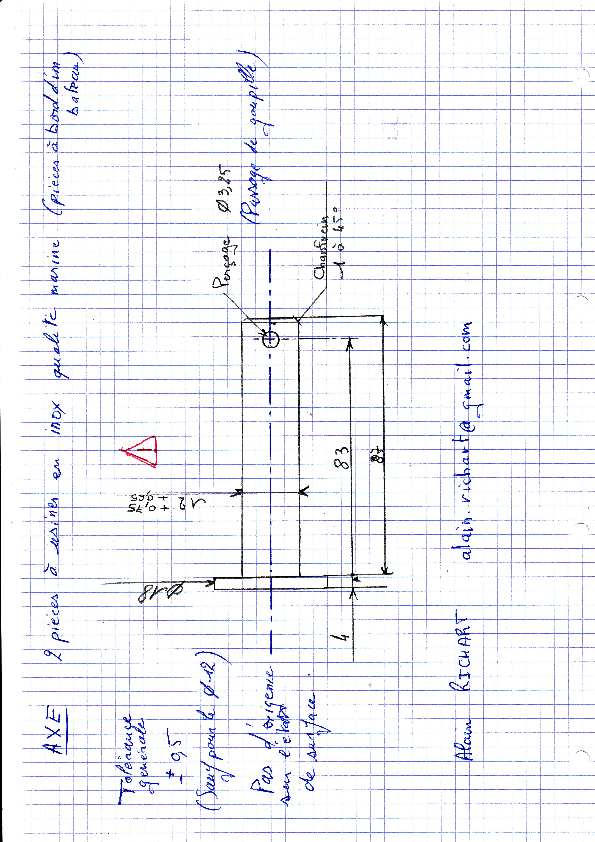 AXE 2 pièces à usiner en inox qualité marine (pièces à bord d'un
bateau)
Tolérance
générale
± 0,5
(Sauf pour le Ø 12)
Pas d'exigence
sur l'état
de surface.
Ø 18
12 + 0,75
+ 0,05
!
Perçage Ø 3,25
(Passage de goupille)
Chanfrein
1 à 45°
4
83
87
Alain RICHART alain.richart@gmail.com